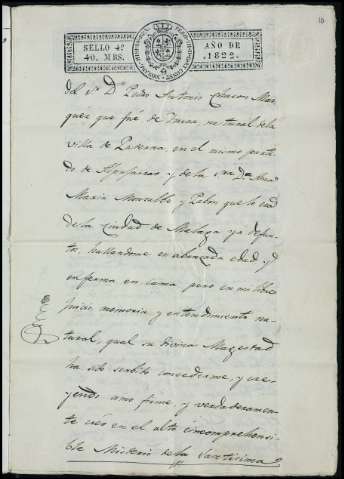 SELLO 4º
40. MRS.
AÑO DE
1822.
del Sr. Dn. Pedro Antonio Chacon Mar
ques que fue de natural de la
villa de Paterna en el mismo
do de Alpujarras y de la Sra. Da. Ana
Maria Moncalbo y Pabon que lo
de la Ciudad de Malaga ya defun
tos, hallandome en abanzada edad y
enferma en cama pero en mi libre
juicio, memoria, y entendimiento na
tural qual su divina Magestad
ha sido serbido concederme, y cre
yendo como firme y verdaderamen
te creo en el alto e incomprehensi
ble Misterio de la Santisima